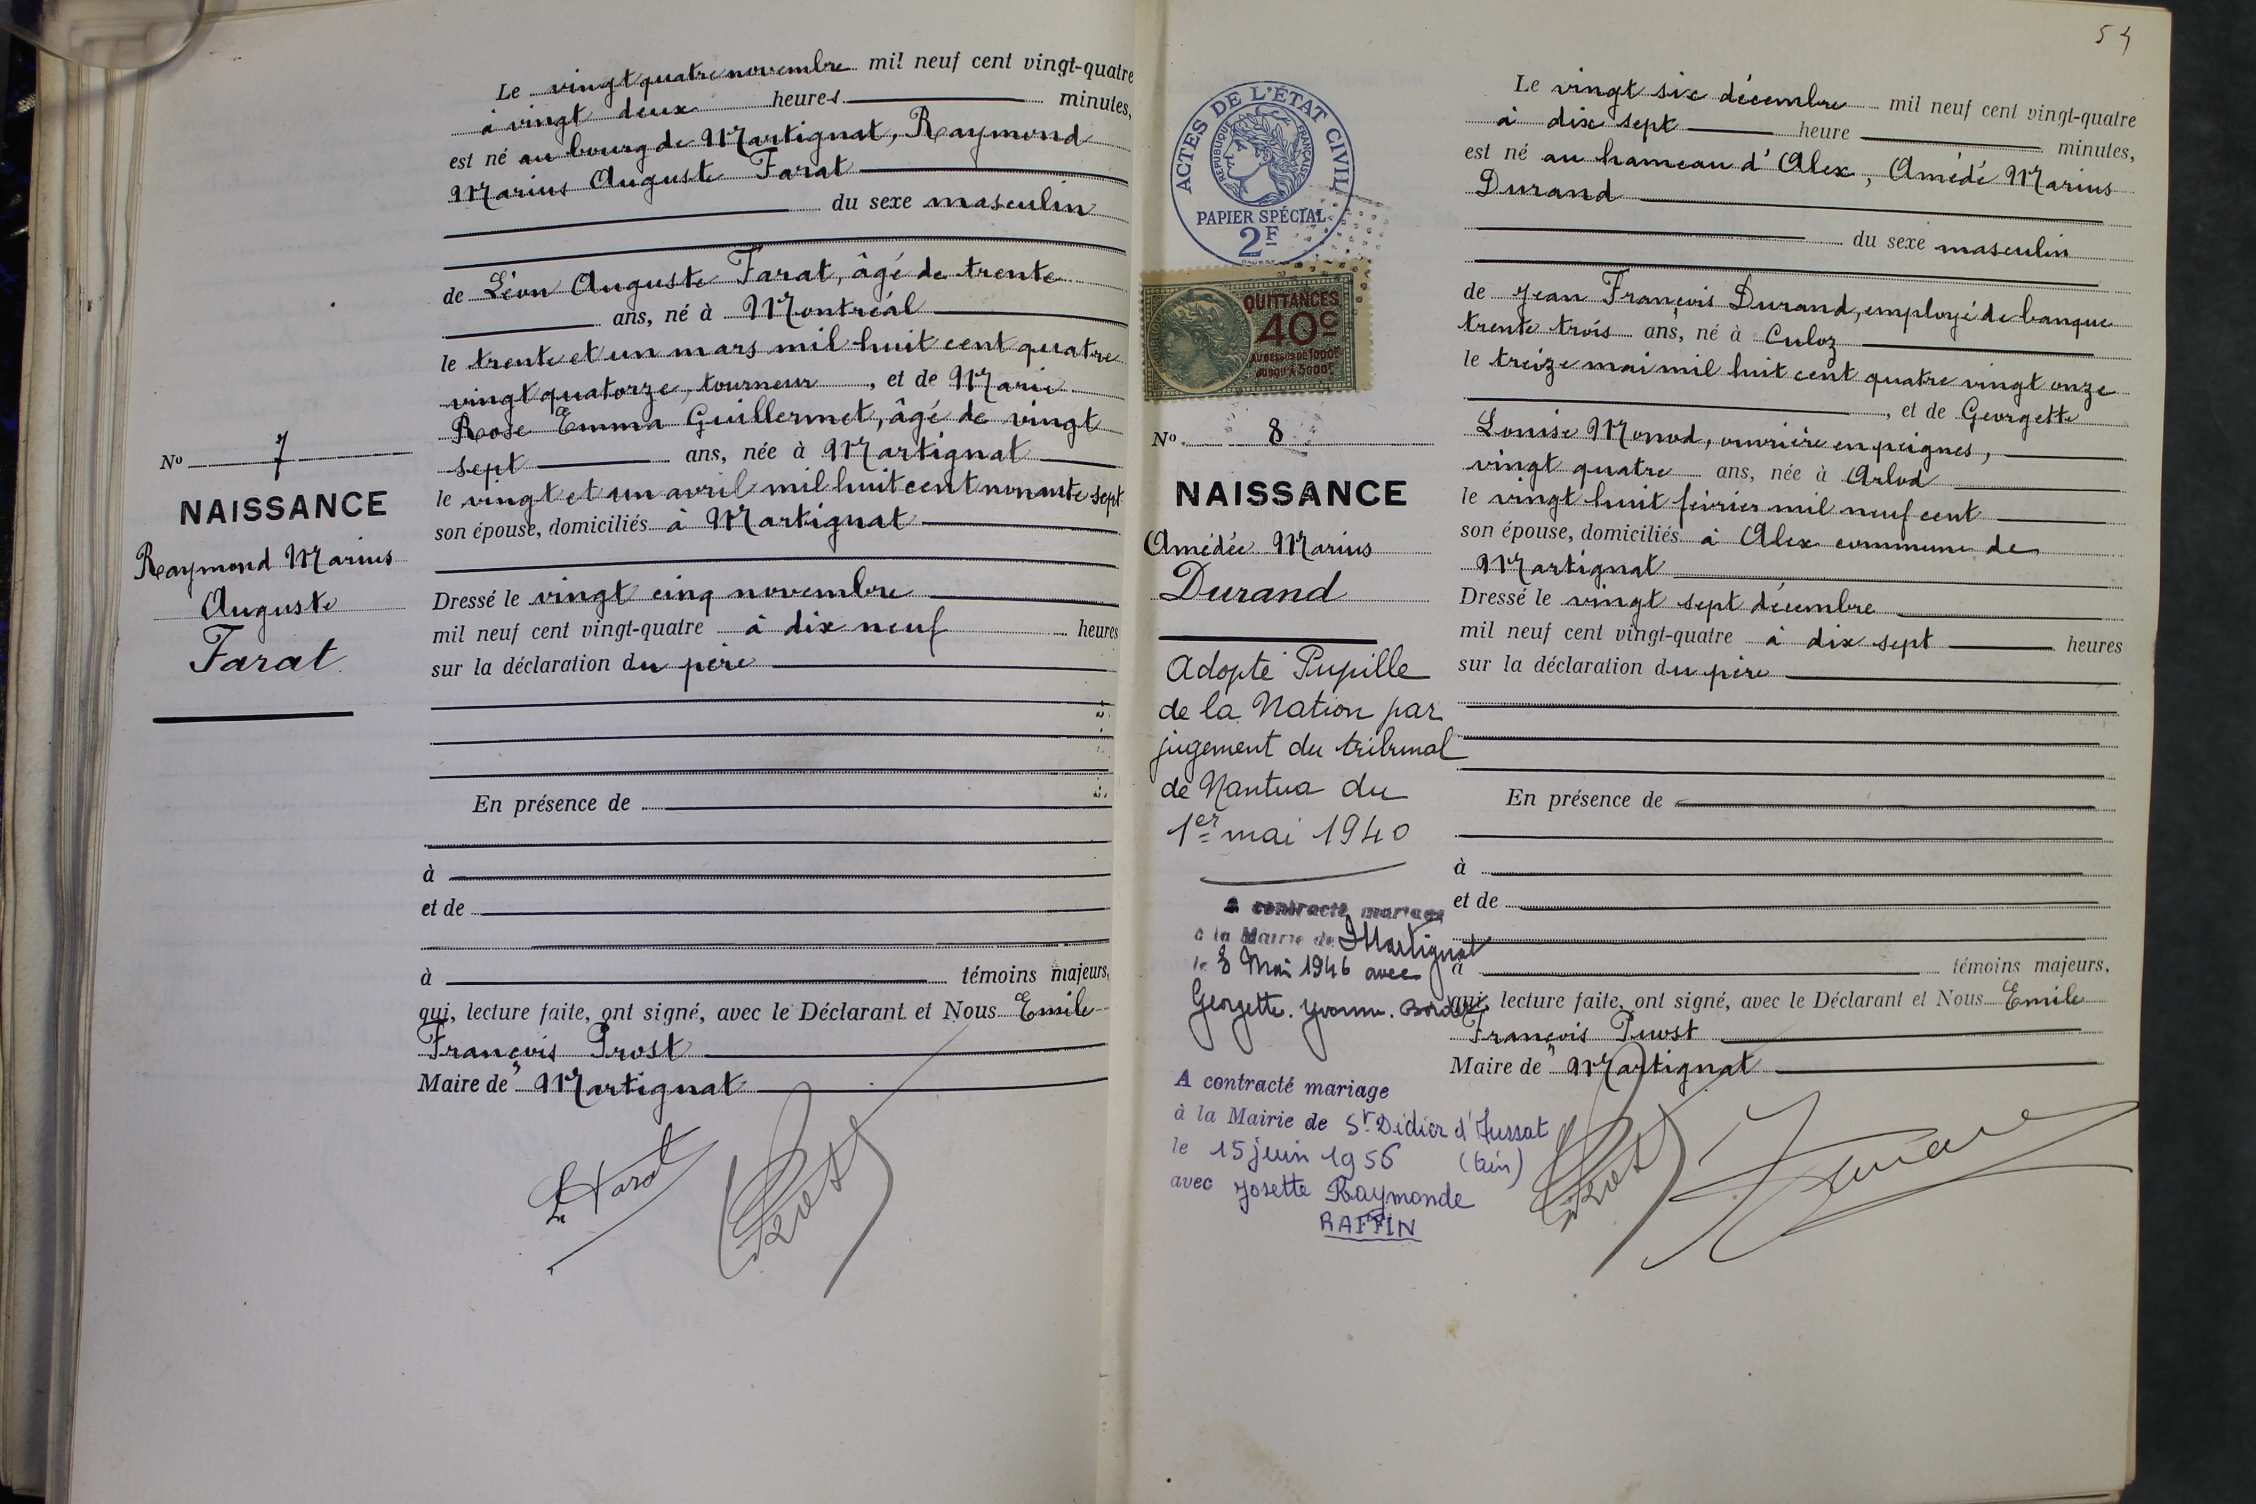 Le vingt quatre novembre mil neuf cent vingt-quatre
à vingt deux heures minutes,
est né au bourg de Martignat, Raymond
Marius Auguste Farat
du sexe masculin
de Léon Auguste Farat, âgé de trente
ans, né à Montréal
le trente et un mars mil huit cent quatre
vingt quatorze, tourneur, et de Marie
Rose Emma Guillermet, âgé de vingt
sept ans, née à Martignat
le vingt et un avril mil huit cent nonante sept
son épouse, domiciliés à Martignat
Dressé le vingt cinq novembre
mil neuf cent vingt-quatre à dix neuf heures
sur la déclaration du père
En présence de
à
et de
à témoins majeurs,
qui, lecture faite, ont signé, avec le Déclarant et Nous Emile
François Prost
Maire de Martignat
L Farat
Prost
No 7
NAISSANCE
Raymond Marius
Auguste
Farat
54
ACTES DE L'ÉTAT CIVIL
RÉPUBLIQUE FRANÇAISE
PAPIER SPÉCIAL
2F
QUITTANCES
40c
AU DESSUS DE 1000F
JUSQU'À 3000F
No 8
NAISSANCE
Amédée Marius
Durand
Adopté Pupille
de la Nation par
jugement du tribunal
de Nantua du
1er mai 1940
A contracté mariage
à la Mairie de Martignat
le 8 Mai 1946 avec
Georgette. Yvonne.
A contracté mariage
à la Mairie de St Didier d'Aussat
le 15 juin 1956 (Ain)
avec Josette Raymonde
RAFFIN
Le vingt six décembre mil neuf cent vingt-quatre
à dix sept heure minutes,
est né au hameau d'Alex, Amédé Marius
Durand
du sexe masculin
de Jean François Durand, employé de banque
trente trois ans, né à Culoz
le treize mai mil huit cent quatre vingt onze
, et de Georgette
Louise Monod, ouvrière en peignes,
vingt quatre ans, née à Arlod
le vingt huit février mil neuf cent
son épouse, domiciliés à Alex commune de
Martignat
Dressé le vingt sept décembre
mil neuf cent vingt-quatre à dix sept heures
sur la déclaration du père
En présence de
à
et de
à témoins majeurs,
qui, lecture faite, ont signé, avec le Déclarant et Nous Emile
François Prost
Maire de Martignat
Prost